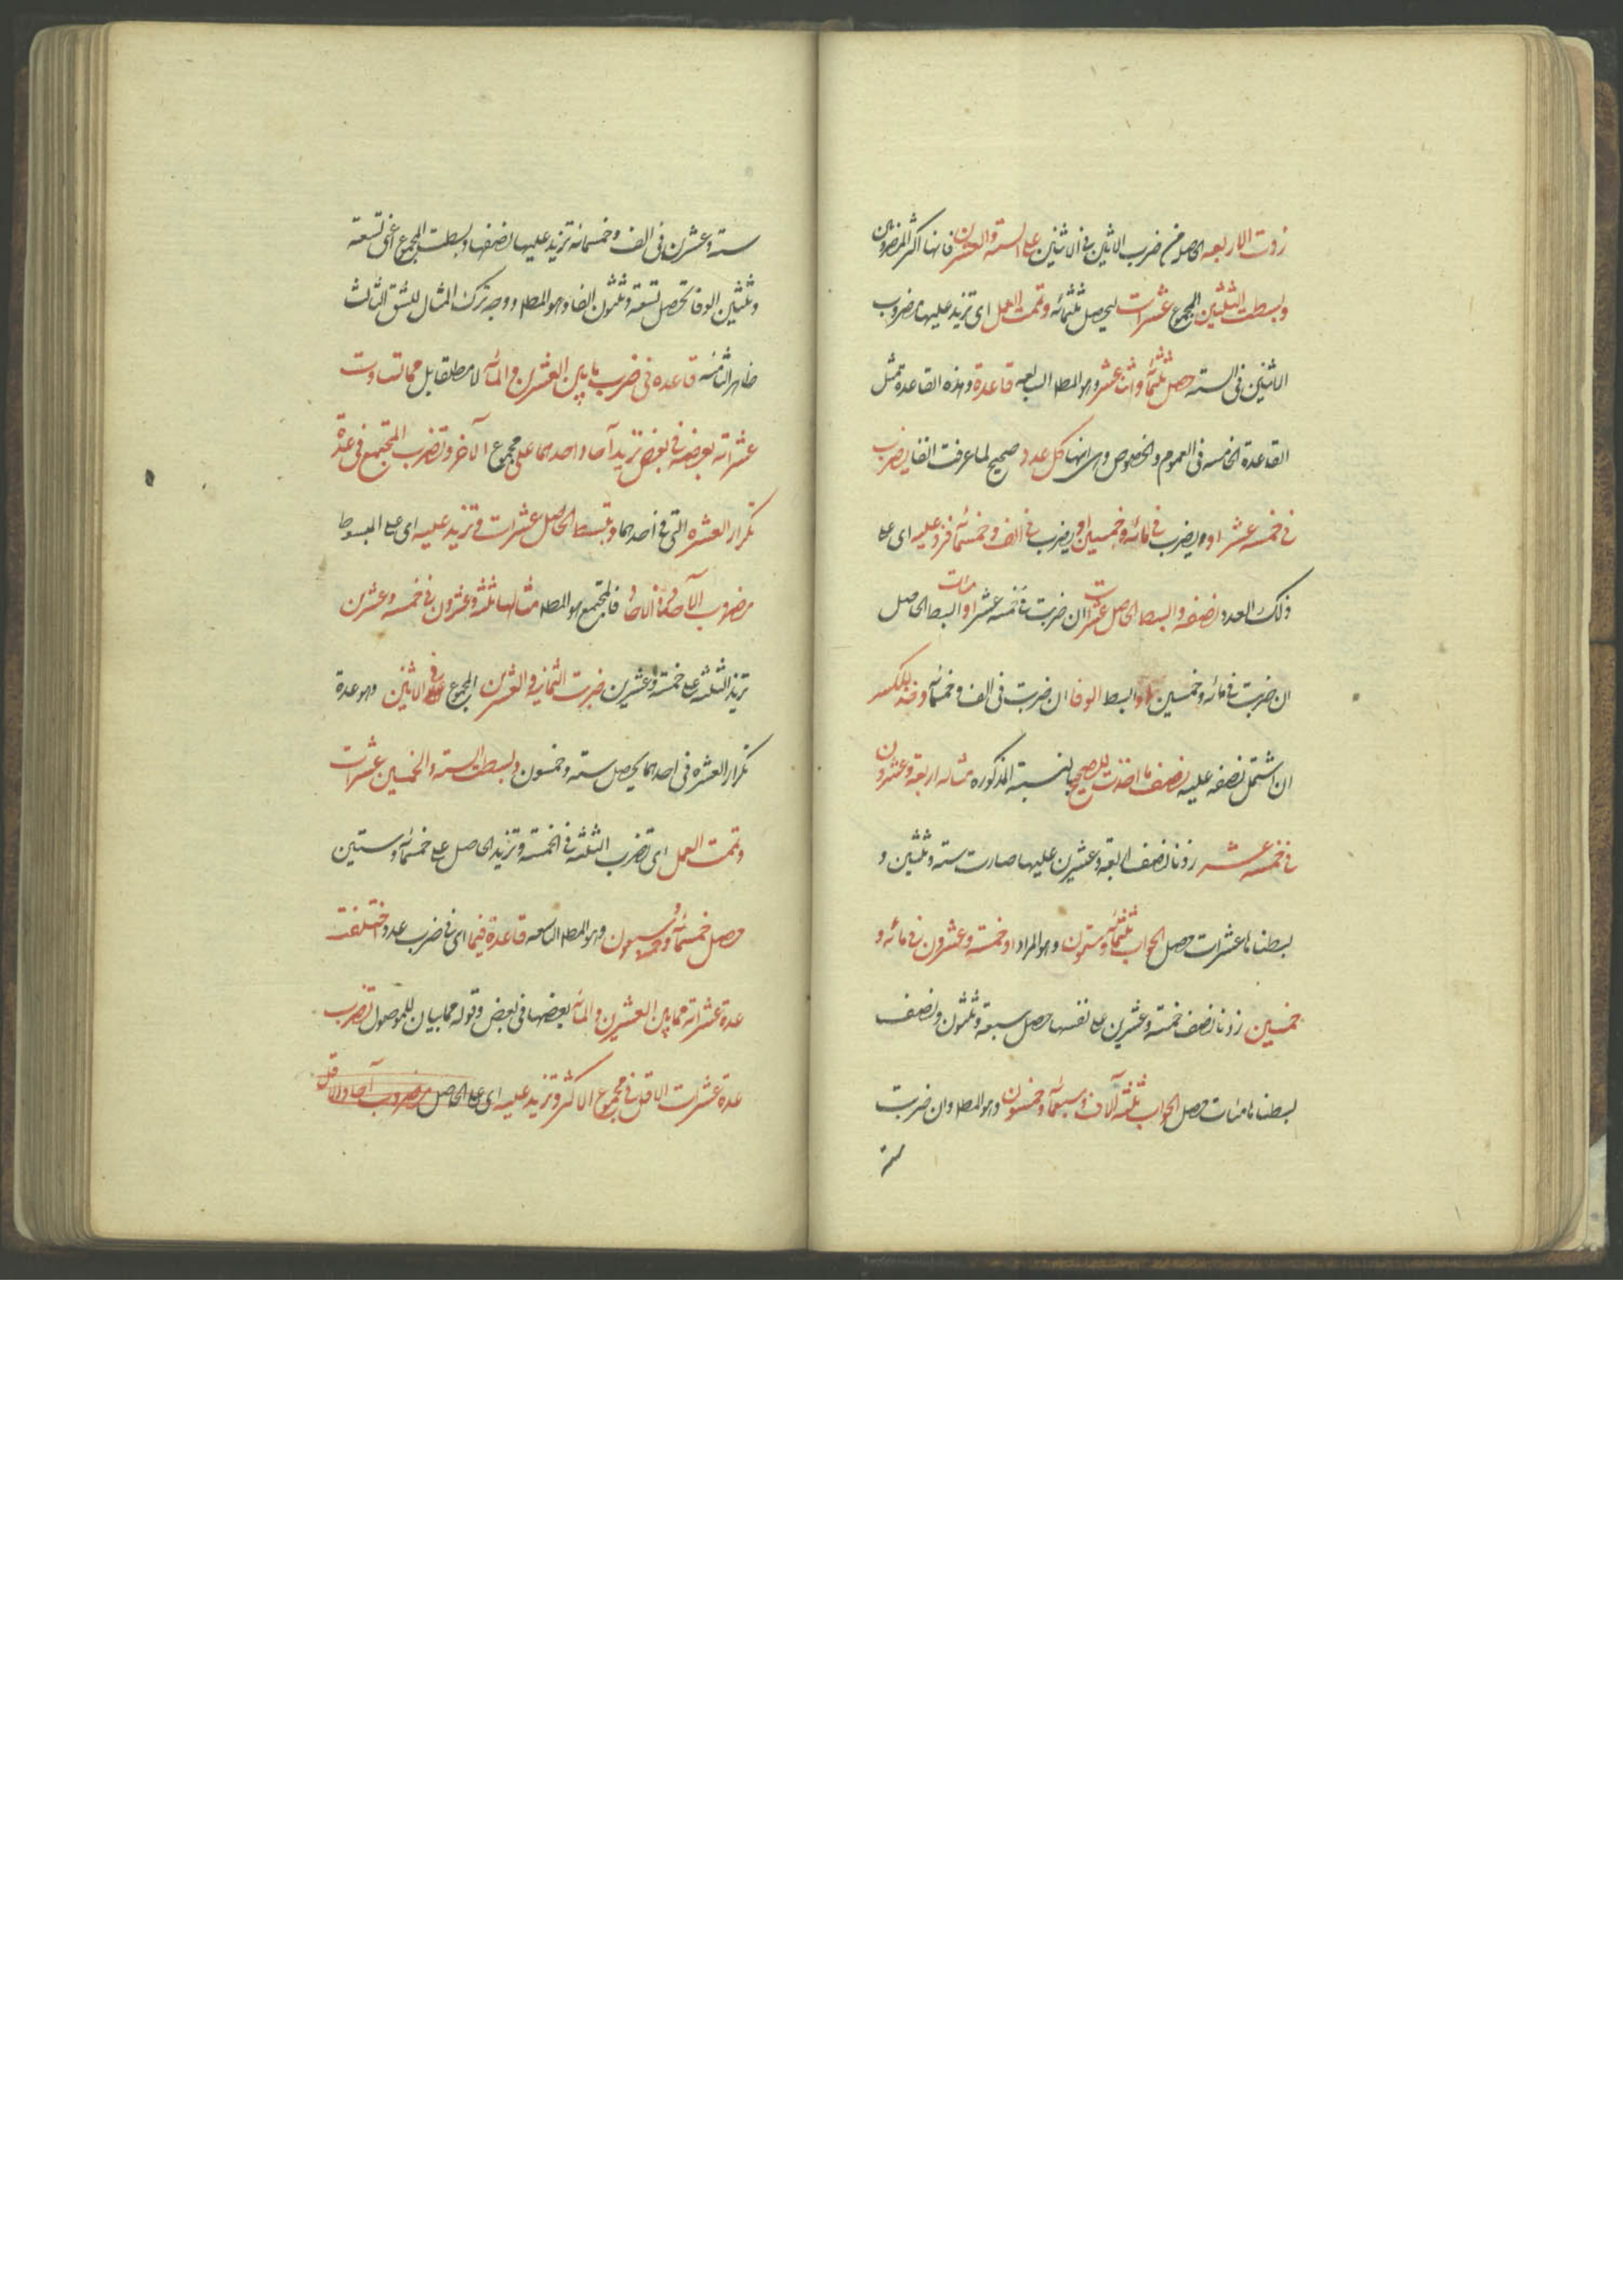 زدت الاربعه الحاصله من ضرب الاثنين فى الاثنين على الستة والعشرين فانها اكثر المضروبين
وبسطت الثلثين المجموع عشرات ليحصل ثلثمائه وتممت العمل اى تزيد عليها مضروب
الاثنين فى الستة حصل ثلثمائة واثنا عشر وهو المطلـ السابعه قاعدة وهذه القاعدة مثل
القاعدة الخامسه فى العموم والخصوص وهى انها كل عدد صحيح لما عرفت انفا يضرب
فى خمسه عشر او يضرب فى مائه وخمسين او يضرب فى الف وخمسمائة فزد عليه اى على
ذلك العدد نصفه وابسط الحاصل عشرات ان ضربت فى خمسه عشر او مئات ابسط الحاصل
ان ضربت فى مائه وخمسين او ابسط الوفا ان ضربت فى الف وخمسمائة وخذ للكسر
ان اشتمل نصفه عليه نصف ما اخذت للصحيح بالنسبة المذكوره مثاله اربعة وعشرون
فى خمسه عشر زدنا نصف اربعة وعشرين عليها صارت ستة وثلثين و
بسطناها عشرات حصل الجواب ثلثمائة وستون وهو المراد او خمسة وعشرون فى مائه و
خمسين زدنا نصف خمسة وعشرين على نفسها حصل سبعة وثلثون ونصف
بسطناها مئات حصل الجواب ثلثة آلاف وسبعمائة وخمسون وهو المطلـ وان ضربت
ستة
ستة وعشرين فى الف وخمسمائه تزيد عليها نصفها وبسطت المجموع اعنى تسعة
وثلثين الوفا تحصل تسعة وثلثون الفا وهو المطلـ ووجه ترك المثال للشق الثالث
ظاهر الثامنه قاعده فى ضرب ما بين العشرين والمائه لا مطلقا بل مما تساوت
عشراته بعضه فى بعض تزيد آحاد احدهما على مجموع الآخر وتضرب المجتمع فى عدة
تكرار العشره التى فى احدهما وتبسط الحاصل عشرات وتزيد عليه اى على المبسوط
مضروب الآحاد فى الآحاد فالمجتمع هو المطلـ مثالها ثلثة وعشرون فى خمسه وعشرين
تزيد الثلثة على خمسة وعشرين ضربت الثمانية والعشرين المجموع فى الاثنين وهو عدة
تكرار العشره فى احدهما يحصل ستة وخمسون وبسطت الستة والخمسين عشرات
وتممت العمل اى تضرب الثلثة فى الخمسة وتزيد الحاصل على خمسمائة وستين
حصل خمسمائة وخمسة وسبعون وهو المطلـ التاسعه قاعدة فيما اى فى ضرب عدد اختلفت
عدة عشراته مما بين العشرين والمائه بعضها فى بعض وقوله مما بيان للموصول تضرب
عدة عشرات الاقل فى مجموع الاكثر وتزيد عليه اى على الحاصل مضروب آحاد الاقل